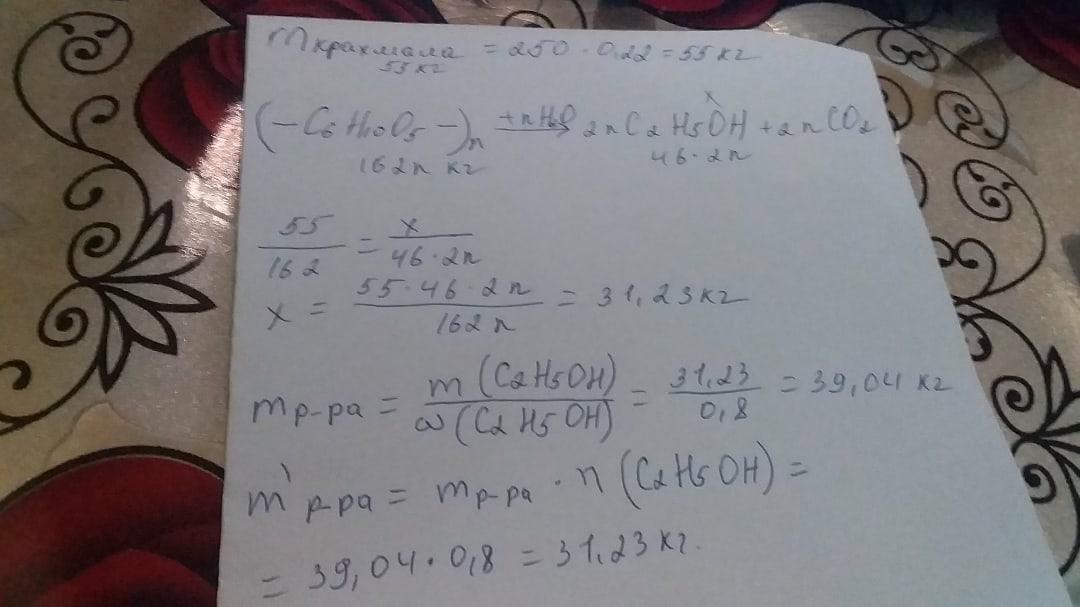 m крахмала = 250 · 0,22 = 55 кг
55 кг
x
(-C6H10O5-)n +nH2O → 2n C2H5OH + 2nCO2
162n кг 46·2n
55/162 = x/46·2n
x = 55·46·2n/162n = 31,23 кг
m р-ра = m(C2H5OH)/ω(C2H5OH) = 31,23/0,8 = 39,04 кг
m' р-ра = m р-ра · n(C2H5OH) =
= 39,04·0,8 = 31,23 кг.